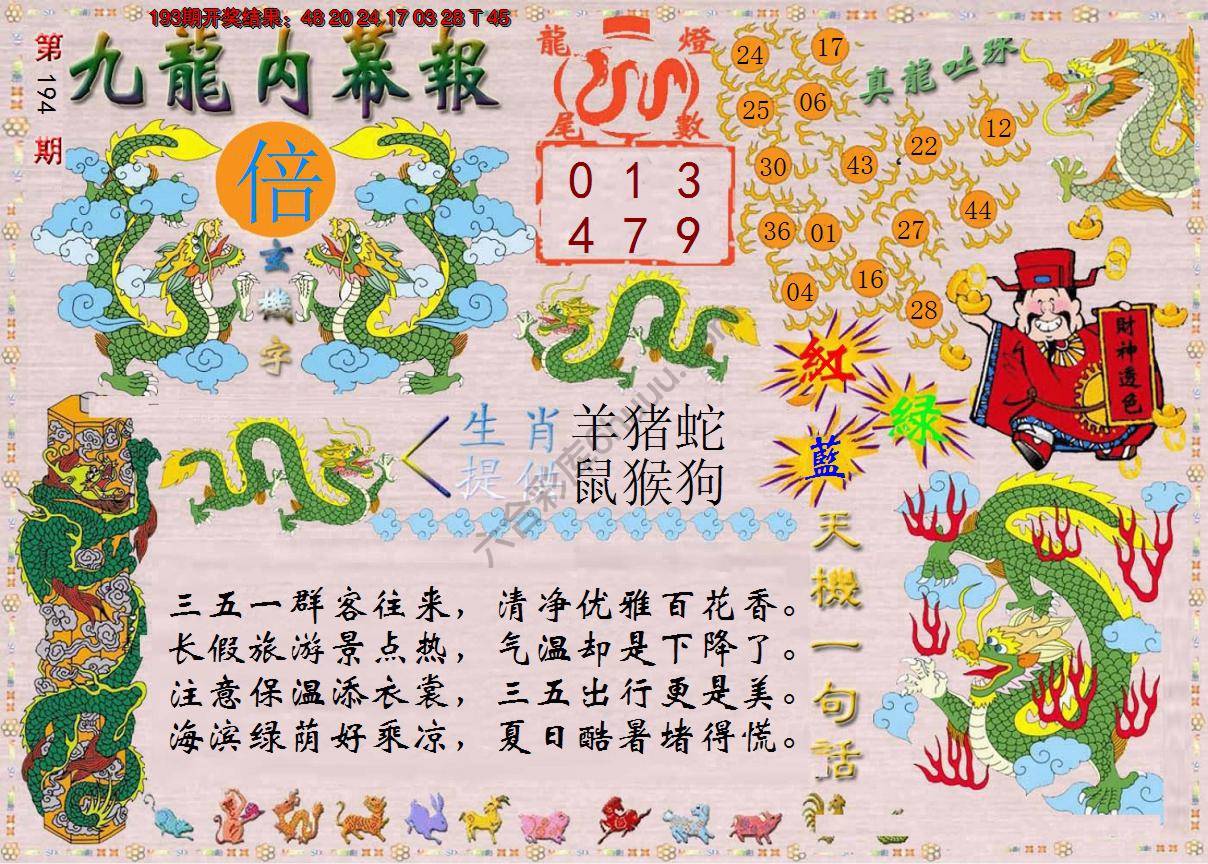 193期开奖结果：48 20 24 17 03 28 T 45
第194期
九龍内幕報
倍
玄機字
龍燈尾數
0 1 3
4 7 9
真龍吐珠
24 17
25 06
30 43 22 12
36 01 27 44
04 16 28
財神透色
紅
綠
藍
生肖提供
羊猪蛇
鼠猴狗
天機一句話
三五一群客往来，清净优雅百花香。
长假旅游景点热，气温却是下降了。
注意保温添衣裳，三五出行更是美。
海滨绿荫好乘凉，夏日酷暑堵得慌。